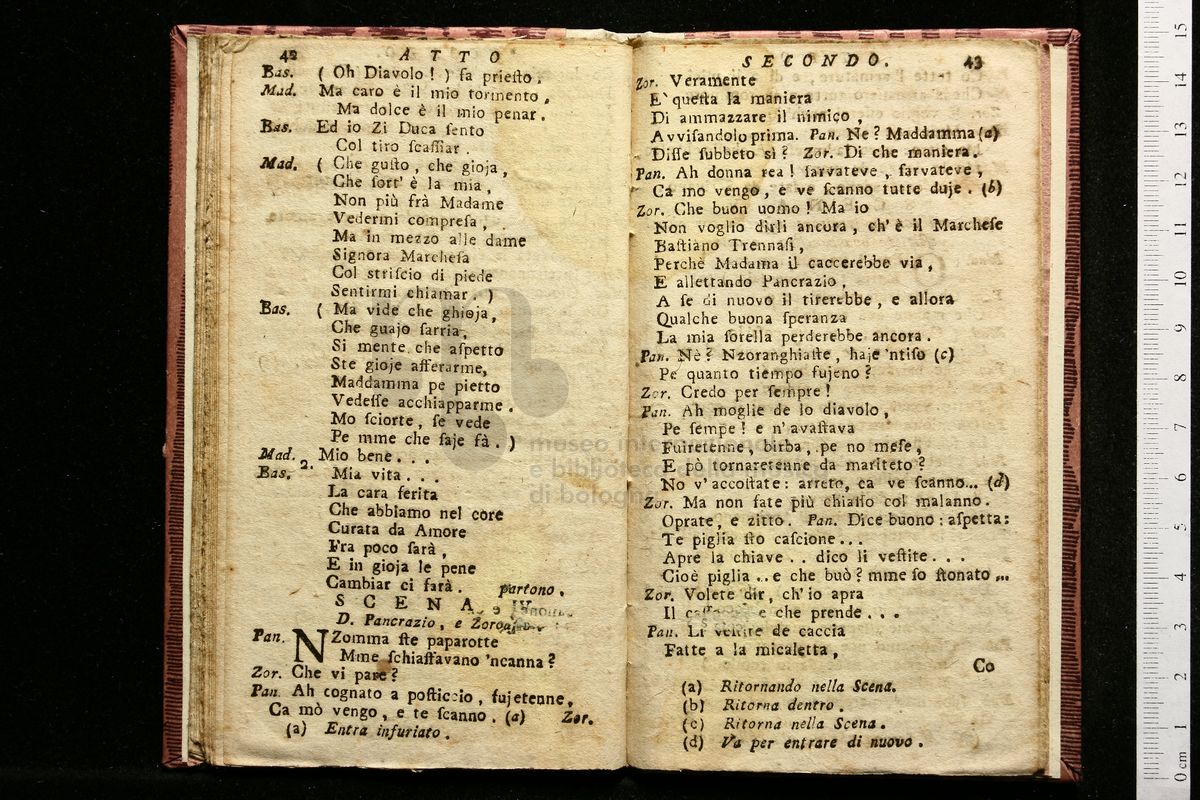 42 ATTO
Bas. ( Oh Diavolo ! ) fa priеſto .
Mad. Ma caro è il mio tormento ,
Ma dolce è il mio penar .
Bas. Ed io Zi Duca ſento
Col tiro ſcaſſiar .
Mad. ( Che guſto , che gioja ,
Che ſort' è la mia ,
Non più frà Madame
Vedermi compreſa ,
Ma in mezzo alle dame
Signora Marcheſa
Col striſcio di piede
Sentirmi chiamar . )
Bas. ( Ma vide che ghioja ,
Che guajo ſarria ,
Si mente che aſpetto
Ste gioje afferarme,
Maddamma pe pietto
Vedeſſe acchiapparme .
Mo ſciorte , ſe vede
Pe mme che ſaje fà . )
Mad. Mio bene . . .
Bas. 2. Mia vita . . .
La cara ferita
Che abbiamo nel core
Curata da Amore
Fra poco ſarà ,
E in gioja le pene
Cambiar ci farà . partono .
SCENA
D. Pancrazio , e
Pan. NZomma ſte paparotte
Mme ſchiaffavano 'ncanna ?
Zor. Che vi pare ?
Pan. Ah cognato a poſticcio , fujetenne,
Ca mò vengo , e te ſcanno . (a) Zor.
(a) Entra infuriato .
SECONDO. 43
Zor. Veramente
E` queſta la maniera
Di ammazzare il nimico ,
Avviſandolo prima. Pan. Ne ? Maddamma (a)
Diſſe ſubbeto sì ? Zor. Di che maniera .
Pan. Ah donna rea ! ſarvateve , ſarvateve ,
Ca mo vengo , e ve ſcanno tutte duje . (b)
Zor. Che buon uomo ! Ma io
Non voglio dirli ancora , ch' è il Marcheſe
Baſtiano Trennaſi ,
Perchè Madama il caccerebbe via ,
E allettando Pancrazio ,
A ſe di nuovo il tirerebbe , e allora
Qualche buona ſperanza
La mia ſorella perderebbe ancora .
Pan. Nè ? Nzoranghiaſte , haje 'ntiſo (c)
Pe quanto tiempo fujeno ?
Zor. Credo per ſempre !
Pan. Ah moglie de lo diavolo ,
Pe ſempe ! e n' avaſtava
Fuiretenne , birba , pe no meſe ,
E pò tornaretenne da mariteto ?
No v' accoſtate : arreto, ca ve ſcanno... (d)
Zor. Ma non fate più chiaſſo col malanno .
Oprate , e zitto . Pan. Dice buono : aſpetta:
Te piglia ſto caſcione . . .
Apre la chiave . . dico li veſtite . . .
Cioè piglia .. e che buò ? mme ſo ſtonato ...
Zor. Volete dir , ch' io apra
Il e che prende . . .
Pan. Li veſtite de caccia
Fatte a la micaletta ,
Co
(a) Ritornando nella Scena.
(b) Ritorna dentro .
(c) Ritorna nella Scena .
(d) Va per entrare di nuovo .
museo internazionale
e biblioteca della musica
di bologna
0 cm 1 2 3 4 5 6 7 8 9 10 11 12 13 14 15